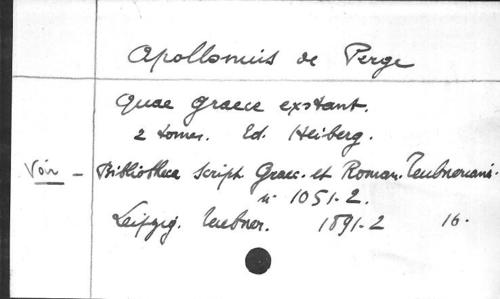 Apollonius de Perge
Quae graece exstant.
2 tomes. Ed. Heiberg.
Voir - Bibliotheca script. Graec. et Roman. Teubneriana.
n° 1051-2.
Leipzig. Teubner. 1891-2 16.